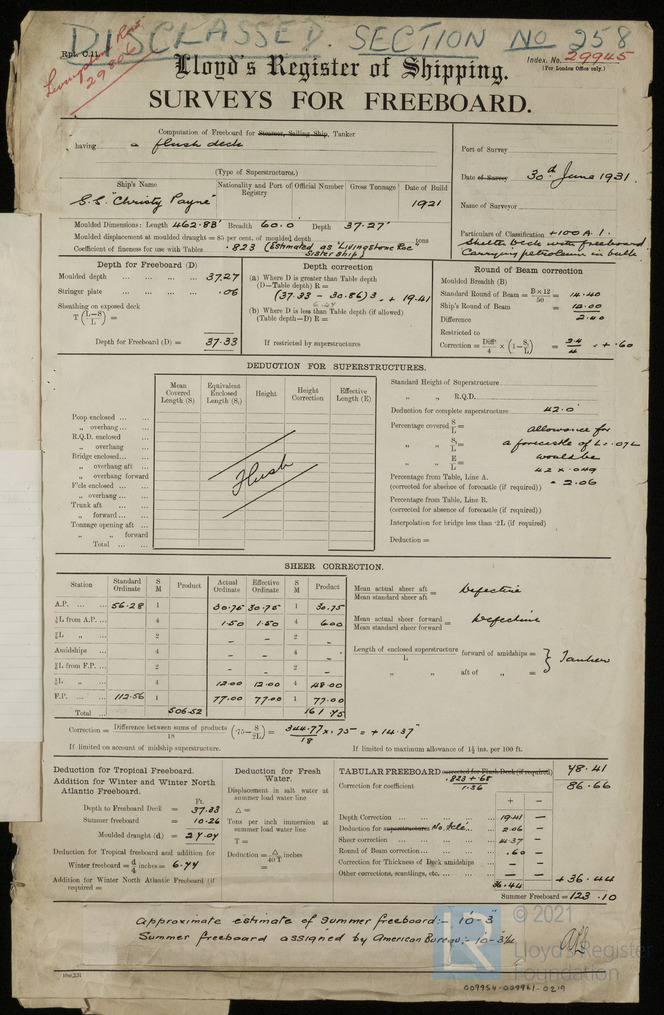 DISCLASSED. SECTION No 258
Rpt. C.11.
Index. No. 29945
(For London Office only.)
29806
Lloyd's Register of Shipping.
SURVEYS FOR FREEBOARD.
Computation of Freeboard for Steamer, Sailing Ship, Tanker
having a flush deck
(Type of Superstructures.)
Port of Survey
Date of Survey 30th June 1931.
Name of Surveyor
Particulars of Classification +100 A.1.
Shelter Deck with freeboard
Carrying petroleum in bulk
Ship's Name Nationality and Port of Registry Official Number Gross Tonnage Date of Build
S.S. "Christy Payne" 1921
Moulded Dimensions: Length 462.83' Breadth 60.0' Depth 37.27'
Moulded displacement at moulded draught = 85 per cent. of moulded depth tons
Coefficient of fineness for use with Tables .823 (Estimated as "Livingstone Roe" Sister ship)
Depth for Freeboard (D)
Moulded depth 37.27
Stringer plate .06
Sheathing on exposed deck
T (L–S/L) =
Depth for Freeboard (D) = 37.33
Depth correction
(a) Where D is greater than Table depth
(D–Table depth) R =
(37.33 – 30.86) 3 = + 19.41
6.47
(b) Where D is less than Table depth (if allowed)
(Table depth–D) R =
If restricted by superstructures
Round of Beam correction
Moulded Breadth (B)
Standard Round of Beam = B×12/50 = 14.40
Ship's Round of Beam = 12.00
Difference 2.40
Restricted to
Correction = Diffce/4 × (1–S₁/L) = 2.4/4 = + .60
DEDUCTION FOR SUPERSTRUCTURES.
Mean Covered Length (S) Equivalent Enclosed Length (S₁) Height Height Correction Effective Length (E)
Poop enclosed
" overhang
R.Q.D. enclosed
" overhang
Bridge enclosed
" overhang aft
" overhang forward
F'cle enclosed
" overhang
Trunk aft
" forward
Tonnage opening aft
" " forward
Total
Flush
Standard Height of Superstructure
" " R.Q.D.
Deduction for complete superstructure 42.0
Percentage covered S/L = allowance for
" " S₁/L = a forecastle of L = .07L
" " E/L = would be
42 x .049
Percentage from Table, Line A.
(corrected for absence of forecastle (if required)) = 2.06
Percentage from Table, Line B.
(corrected for absence of forecastle (if required))
Interpolation for bridge less than .2L (if required)
Deduction =
SHEER CORRECTION.
Station Standard Ordinate S M Product Actual Ordinate Effective Ordinate S M Product
A.P. 56.28 1 30.75 30.75 1 30.75
⅙L from A.P. 4 1.50 1.50 4 6.00
⅓L " 2 – – 2 –
Amidships 4 – – 4 –
⅓L from F.P. 2 – – 2 –
⅙L " 4 12.00 12.00 4 48.00
F.P. 112.56 1 77.00 77.00 1 77.00
Total 506.52 161.75
Mean actual sheer aft / Mean standard sheer aft = Defective
Mean actual sheer forward / Mean standard sheer forward = Defective
Length of enclosed superstructure / L forward of amidships =
" " aft of " =
} Tanker
Correction = Difference between sums of products / 18 (.75–S/2L) = 344.77/18 x .75 = + 14.37
If limited on account of midship superstructure.
If limited to maximum allowance of 1½ ins. per 100 ft.
Deduction for Tropical Freeboard.
Addition for Winter and Winter North Atlantic Freeboard.
Ft.
Depth to Freeboard Deck = 37.33
Summer freeboard = 10.26
Moulded draught (d) = 27.07
Deduction for Tropical freeboard and addition for Winter freeboard = d/4 inches = 6.77
Addition for Winter North Atlantic Freeboard (if required =
Deduction for Fresh Water.
Displacement in salt water at summer load water line
Δ =
Tons per inch immersion at summer load water line
T =
Deduction = Δ/40T inches
=
TABULAR FREEBOARD corrected for Flush Deck (if required) 78.41
Correction for coefficient .823 + .68 / 1.36 86.66
+ –
Depth Correction 19.41 –
Deduction for superstructures No. Fcle. 2.06 –
Sheer correction 14.37 –
Round of Beam correction .60 –
Correction for Thickness of Deck amidships – –
Other corrections, scantlings, etc. – –
36.44 + 36.44
Summer Freeboard = 123.10
Approximate estimate of Summer freeboard:– 10'-3"
Summer freeboard assigned by American Bureau:– 10-3¼
© 2021
Lloyd's Register
Foundation
009954-009961-0219